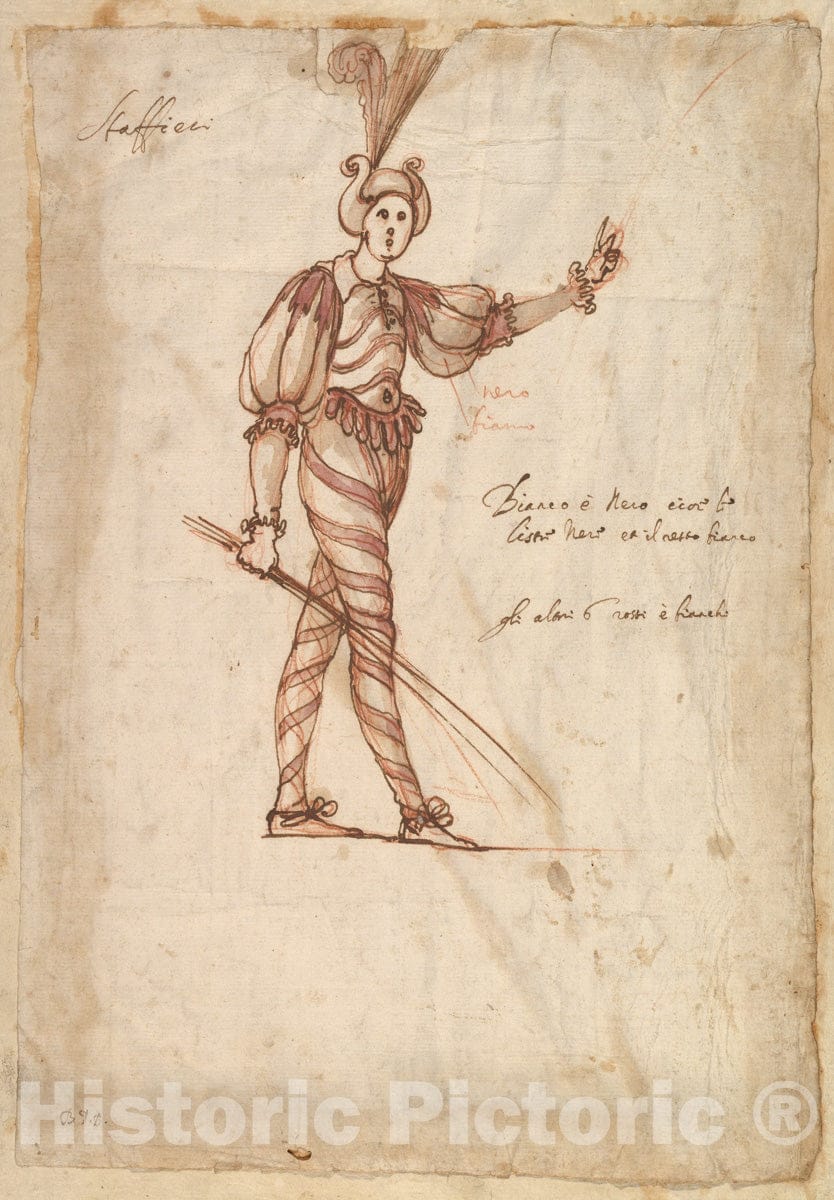 Staffieri
nero
bianco
Bianco è Nero cioè le
liste Nere et il resto bianco
gli altri 6 rossi è bianchi
Historic Pictoric ®